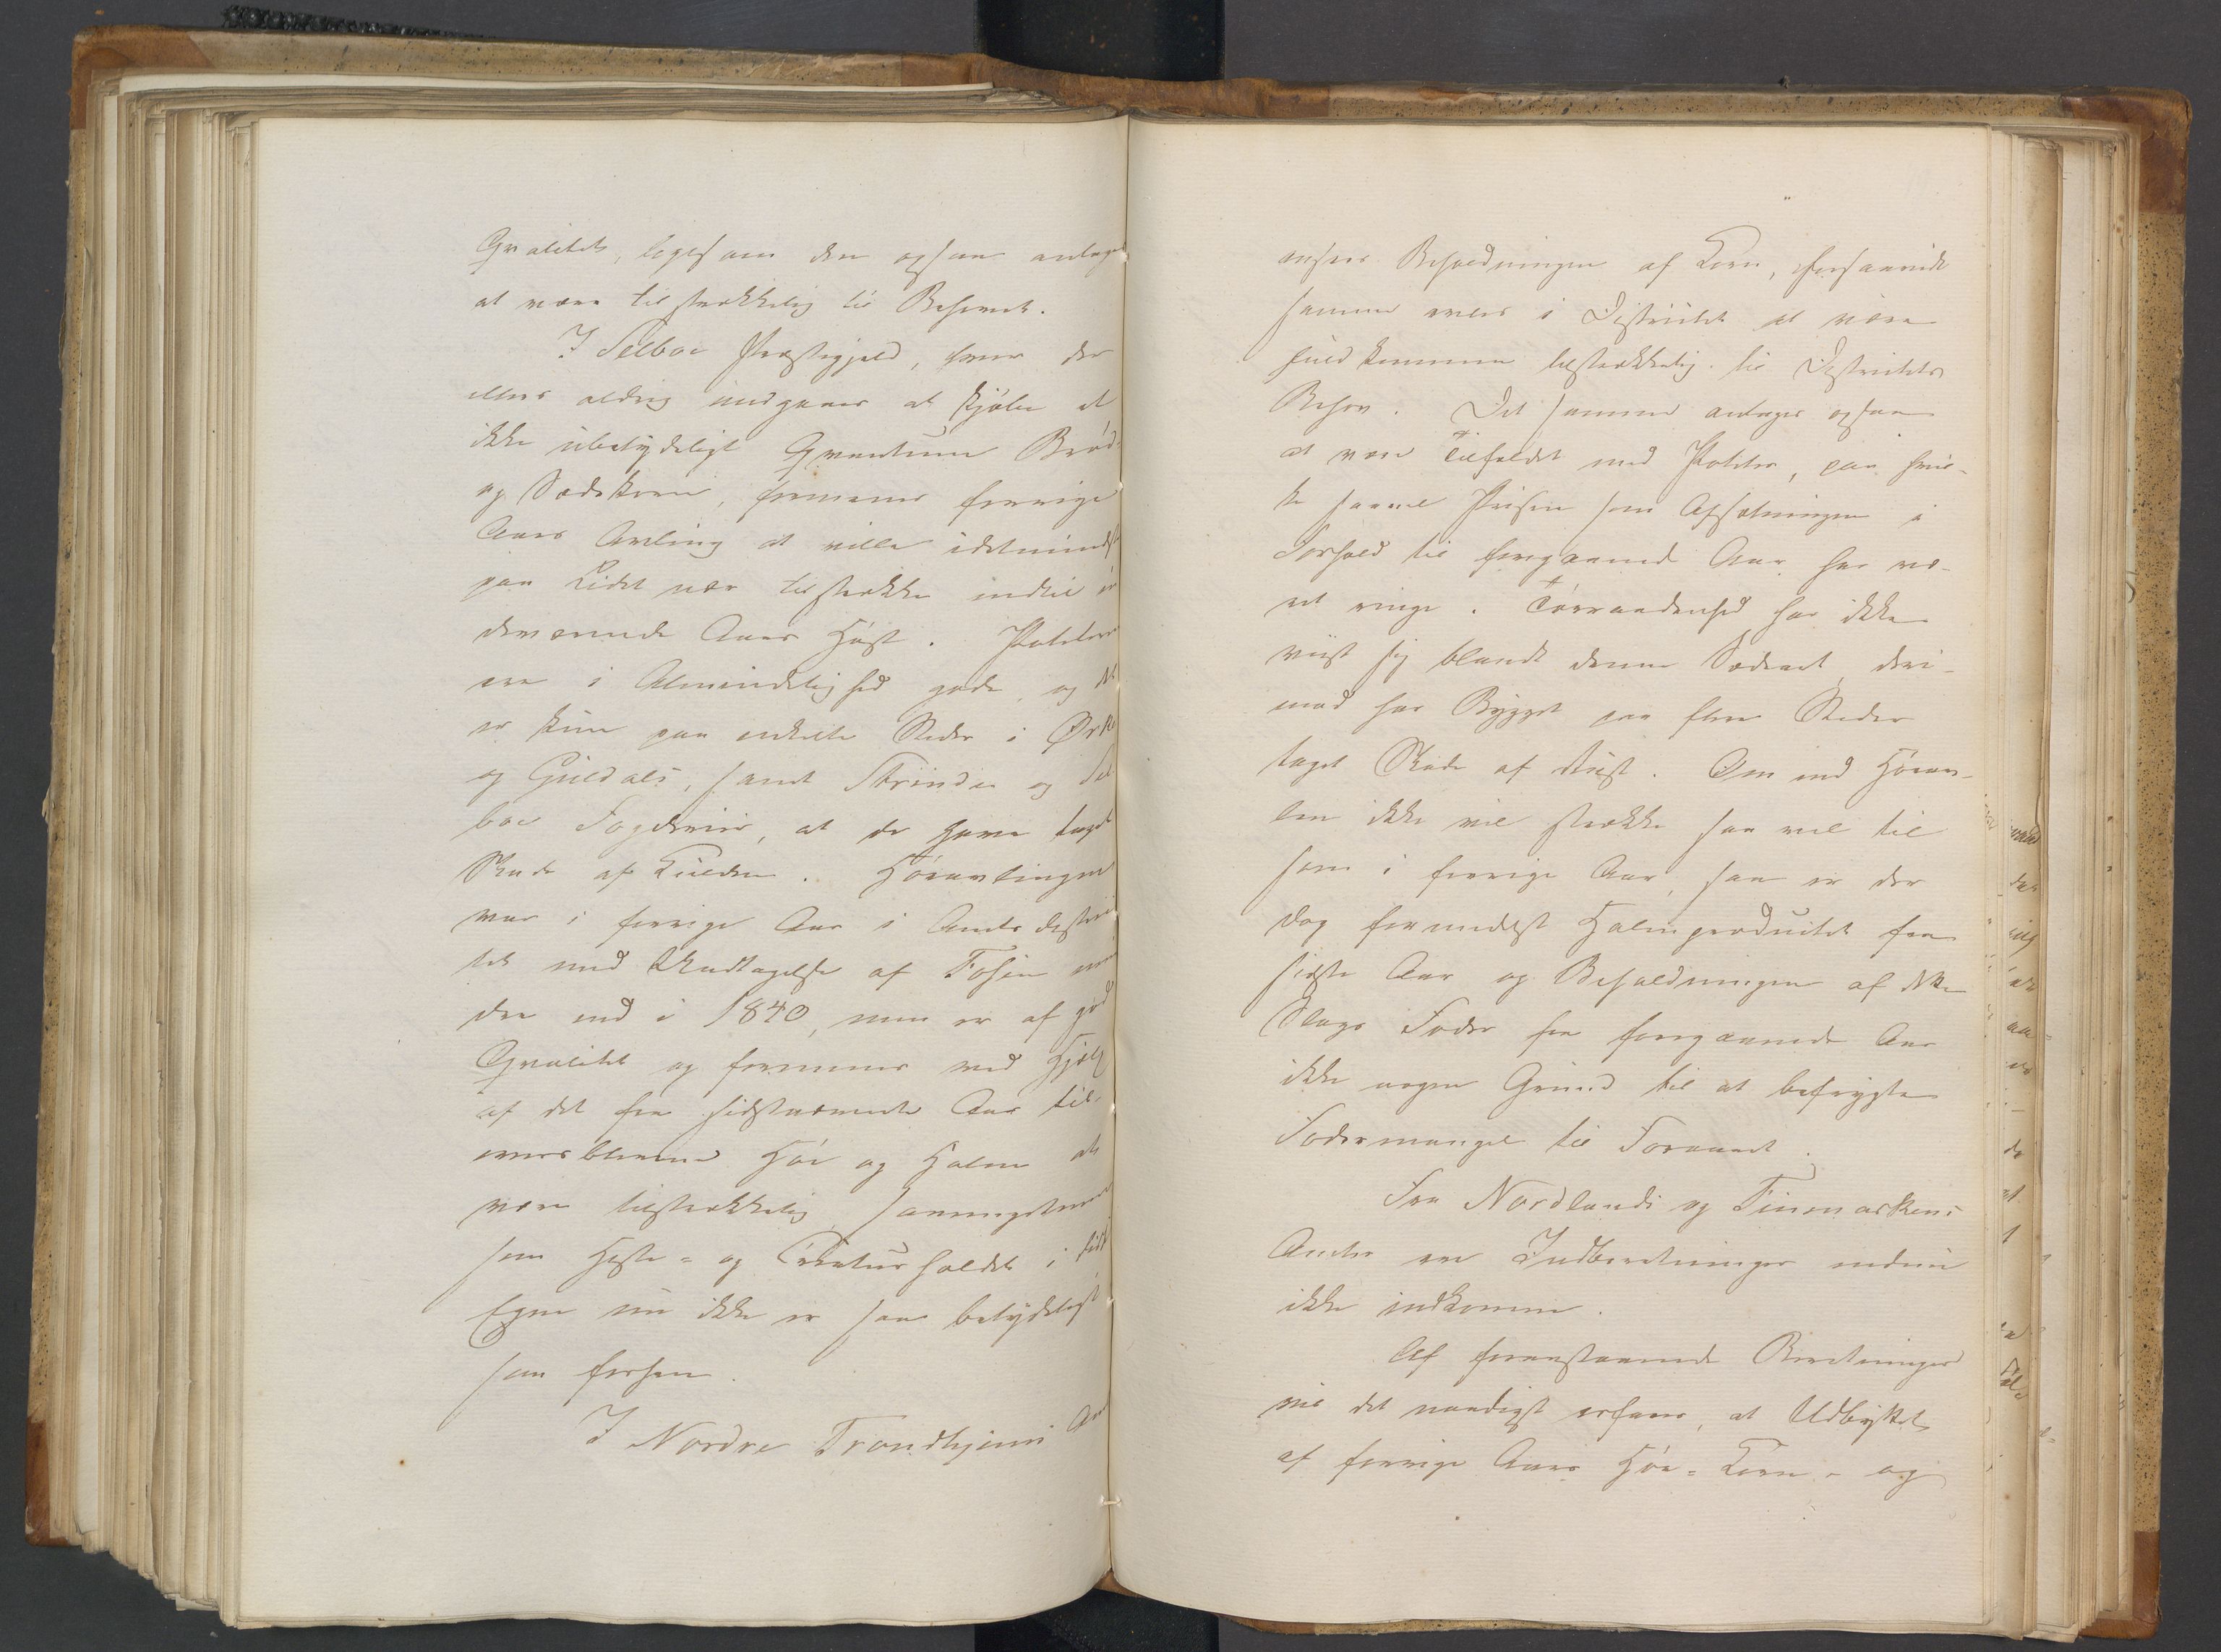 Qvalitet, ligesom den ogsaa antages
at være tilstrækkelig til Behovet.
I Selboe Præstegjeld, hvor der
ellers aldrig undgaaes at kjøbe et
ikke ubetydeligt Qvantum Brød-
og Sædekorn, formenes forrige
Aars Avling at ville idetmindste
paa Lidet nær tilstrække indtil in
deværende Aars Høst. Poteterne
ere i Almindelighed gode, og det
er kun paa enkelte Steder i Ørke
og Guldals, samt Strinde og Sel
boe Fogderier, at de have taget
Skade af Kulden. Høeavlingen
var i forrige Aar i Amtsdistric
tet med Undtagelse af Fosen min
dre end i 1840, men er af god
Qvalitet og formenes med Hjelp
af det fra sidstnævnte Aar til-
oversblevne Høe og Halm at
være tilstrækkelig, saameget mere
som Heste- og Creaturholdet i disse
Egne nu ikke er saa betydeligt
som forhen.
I Nordre Trondhjems Amt
ansees Beholdningen af Korn, forsaavidt
samme avles i Districtet at være
fuldkommen tilstrækkelig til Districtets
Behov. Det samme antages ogsaa
at være Tilfældet med Poteter, paa hvil-
ke saavel Prisen som Afsætningen i
Forhold til foregaaende Aar har væ-
ret ringe. Tørraadenhed har ikke
viist sig blandt denne Sædeart, deri-
mod har Bygget paa flere Steder
taget Skade af Rust. Om end Høeav-
len ikke vil strække saa vel til
som i forrige Aar, saa er der
dog formedelst Halmproductet fra
sidste Aar og Beholdningen af dette
Slags Foder fra foregaaende Aar
ikke nogen Grund til at befrygte
Fodermangel til Foraaret.
Fra Nordlands og Finmarkens
Amter ere Indberetninger endnu
ikke indkomne.
Af foranstaaende Beretninger
vil det naadigst erfares, at Udbyttet
af forrige Aars Høe- Korn- og